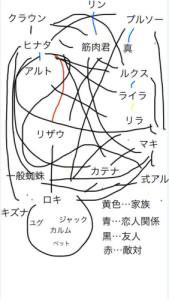 リン
クラウン
プルソー
ヒナタ
筋肉君
真
アルト
ルクス
ライラ
リザウ
リラ
マキ
一般蜘蛛
カテナ
式アル
ロキ
キズナ
黄色…家族
ユグ
ジャック
青…恋人関係
カルム
黒…友人
ペット
赤…敵対